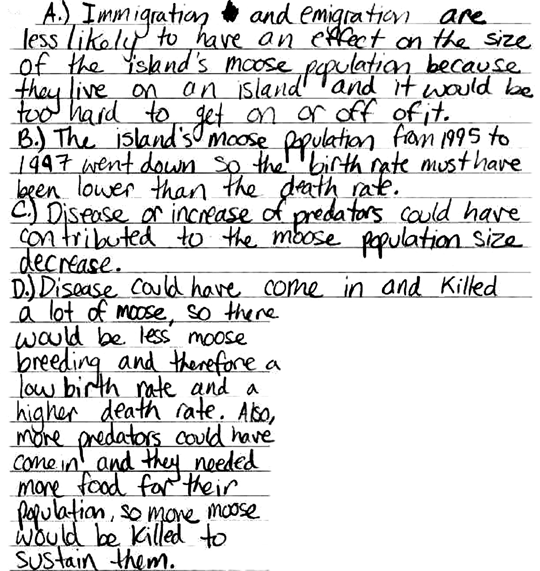 A.) Immigration and emigration are
less likely to have an effect on the size
of the island's moose population because
they live on an island and it would be
too hard to get on or off of it.
B.) The island's moose population from 1995 to
1997 went down so the birth rate must have
been lower than the death rate.
C.) Disease or increase of predators could have
contributed to the moose population size
decrease.
D.) Disease could have come in and killed
a lot of moose, so there
would be less moose
breeding and therefore a
low birth rate and a
higher death rate. Also,
more predators could have
come in and they needed
more food for their
population, so more moose
would be killed to
sustain them.